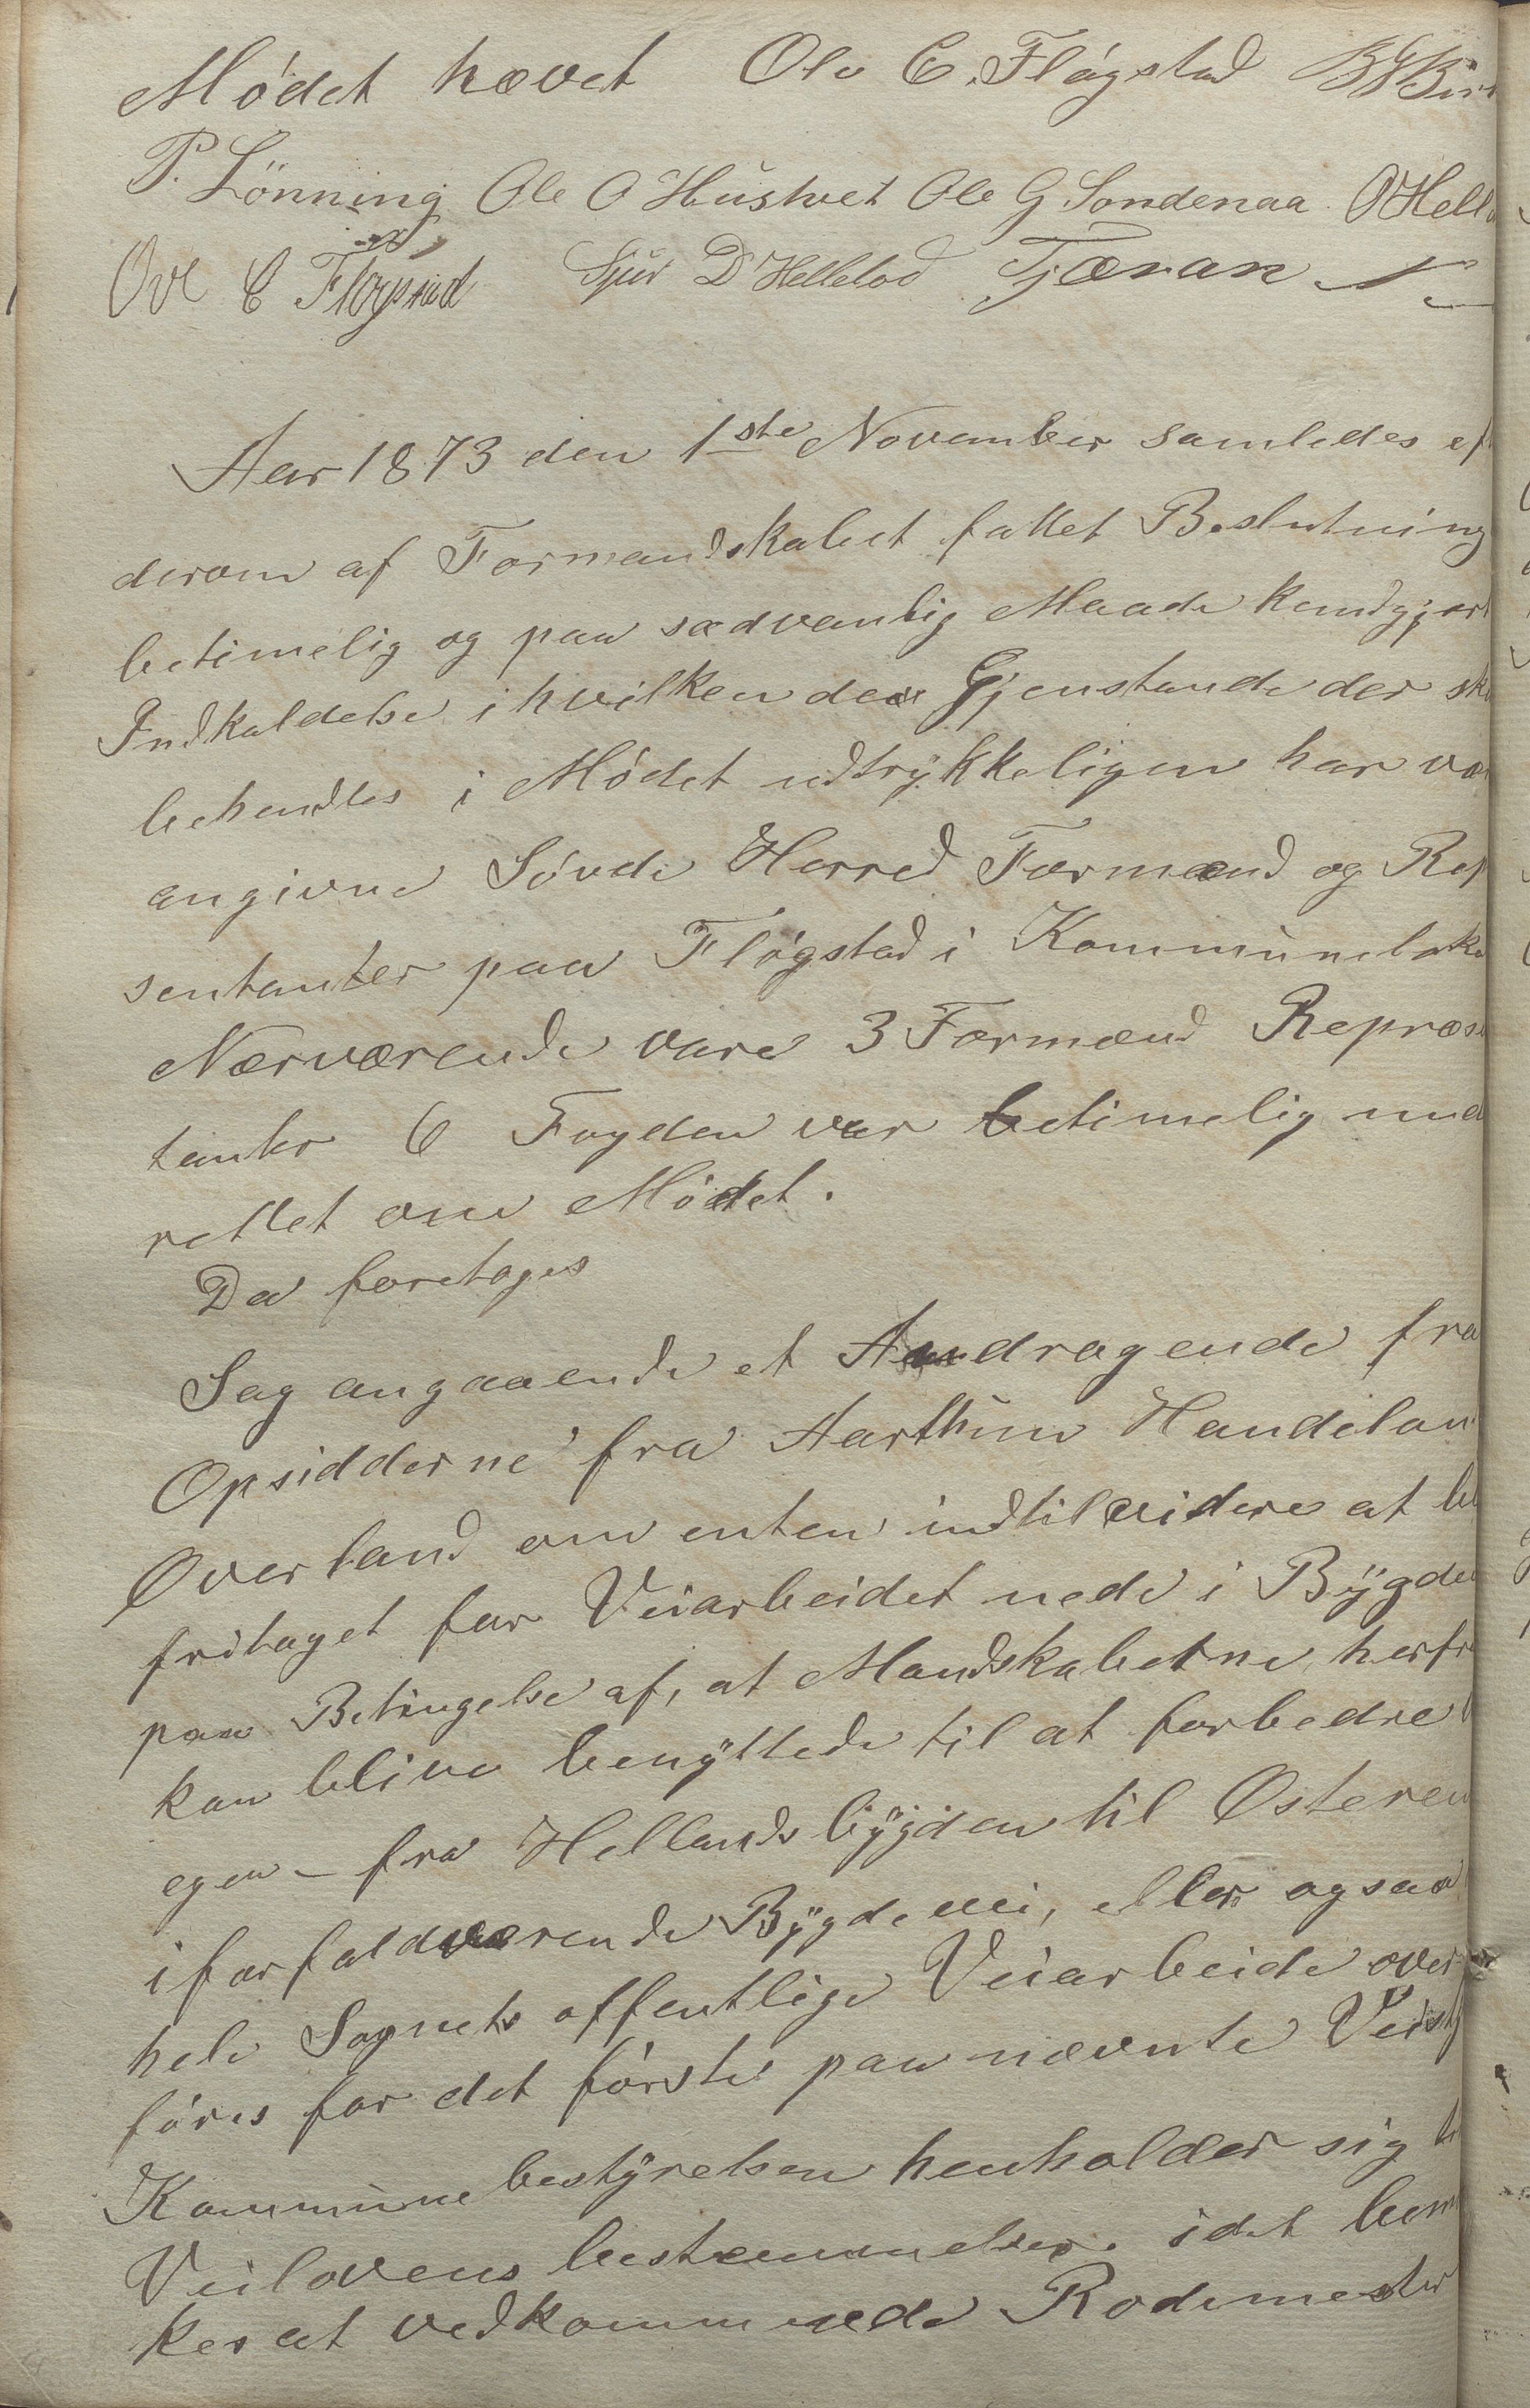 Mödet hævet Ole C. Flógstad
P. Lönning Ole O Hustvet Ole G Sondenaa OHell
Ole C Flogstad Sjur D Hellelod Tjæran
Aar 1873 den 1ste November samledes ef
derom af Formandskabet fattet Beslutning
betimelig og paa sædvanlig Maade kundgjort
Indkaldelse i hvilken der Gjenstande der sku
behandles i Mødet udtrykkeligen har vær
angivne Søvde Herred Formænd og Rep
sentanter paa Fløgstad i Kommuneloka
Nærværende vare 3 Formænd Repræse
tanter 6 Fogden var betimelig und
rettet om Mødet.
Da foretoges
Sag angaaende et Andragende fra
Opsidderne fra Aarthun Handeland
Overland om enten indtilvidere at bli
fritaget for Veiarbeidet nede i Bygden
paa Betingelse af, at Mandskaberne herfra
kan blive benyttede til at forbedre
egen - fra Hellandsbygden til Osteren
iforfaldværende Bygdevei, eller ogsaa
hele Sognets offentlige Veiarbeide over
føres for det første paa nævnte Veisty
Kommunebestyrelsen henholder sig til
Veilovens bestemmelser. idet bem
kes at vedkommende Rodemester